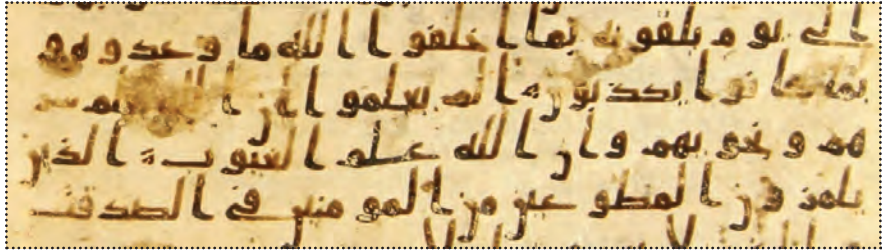 الى يوم يلقونه بما اخلفوا الله ما وعدوه و
بما كانوا يكذبون الم يعلموا ان الله يعلم سر
هم ونجويهم وان الله علم الغيوب الذين
يلمزون المطوعين من المومنين في الصدقت